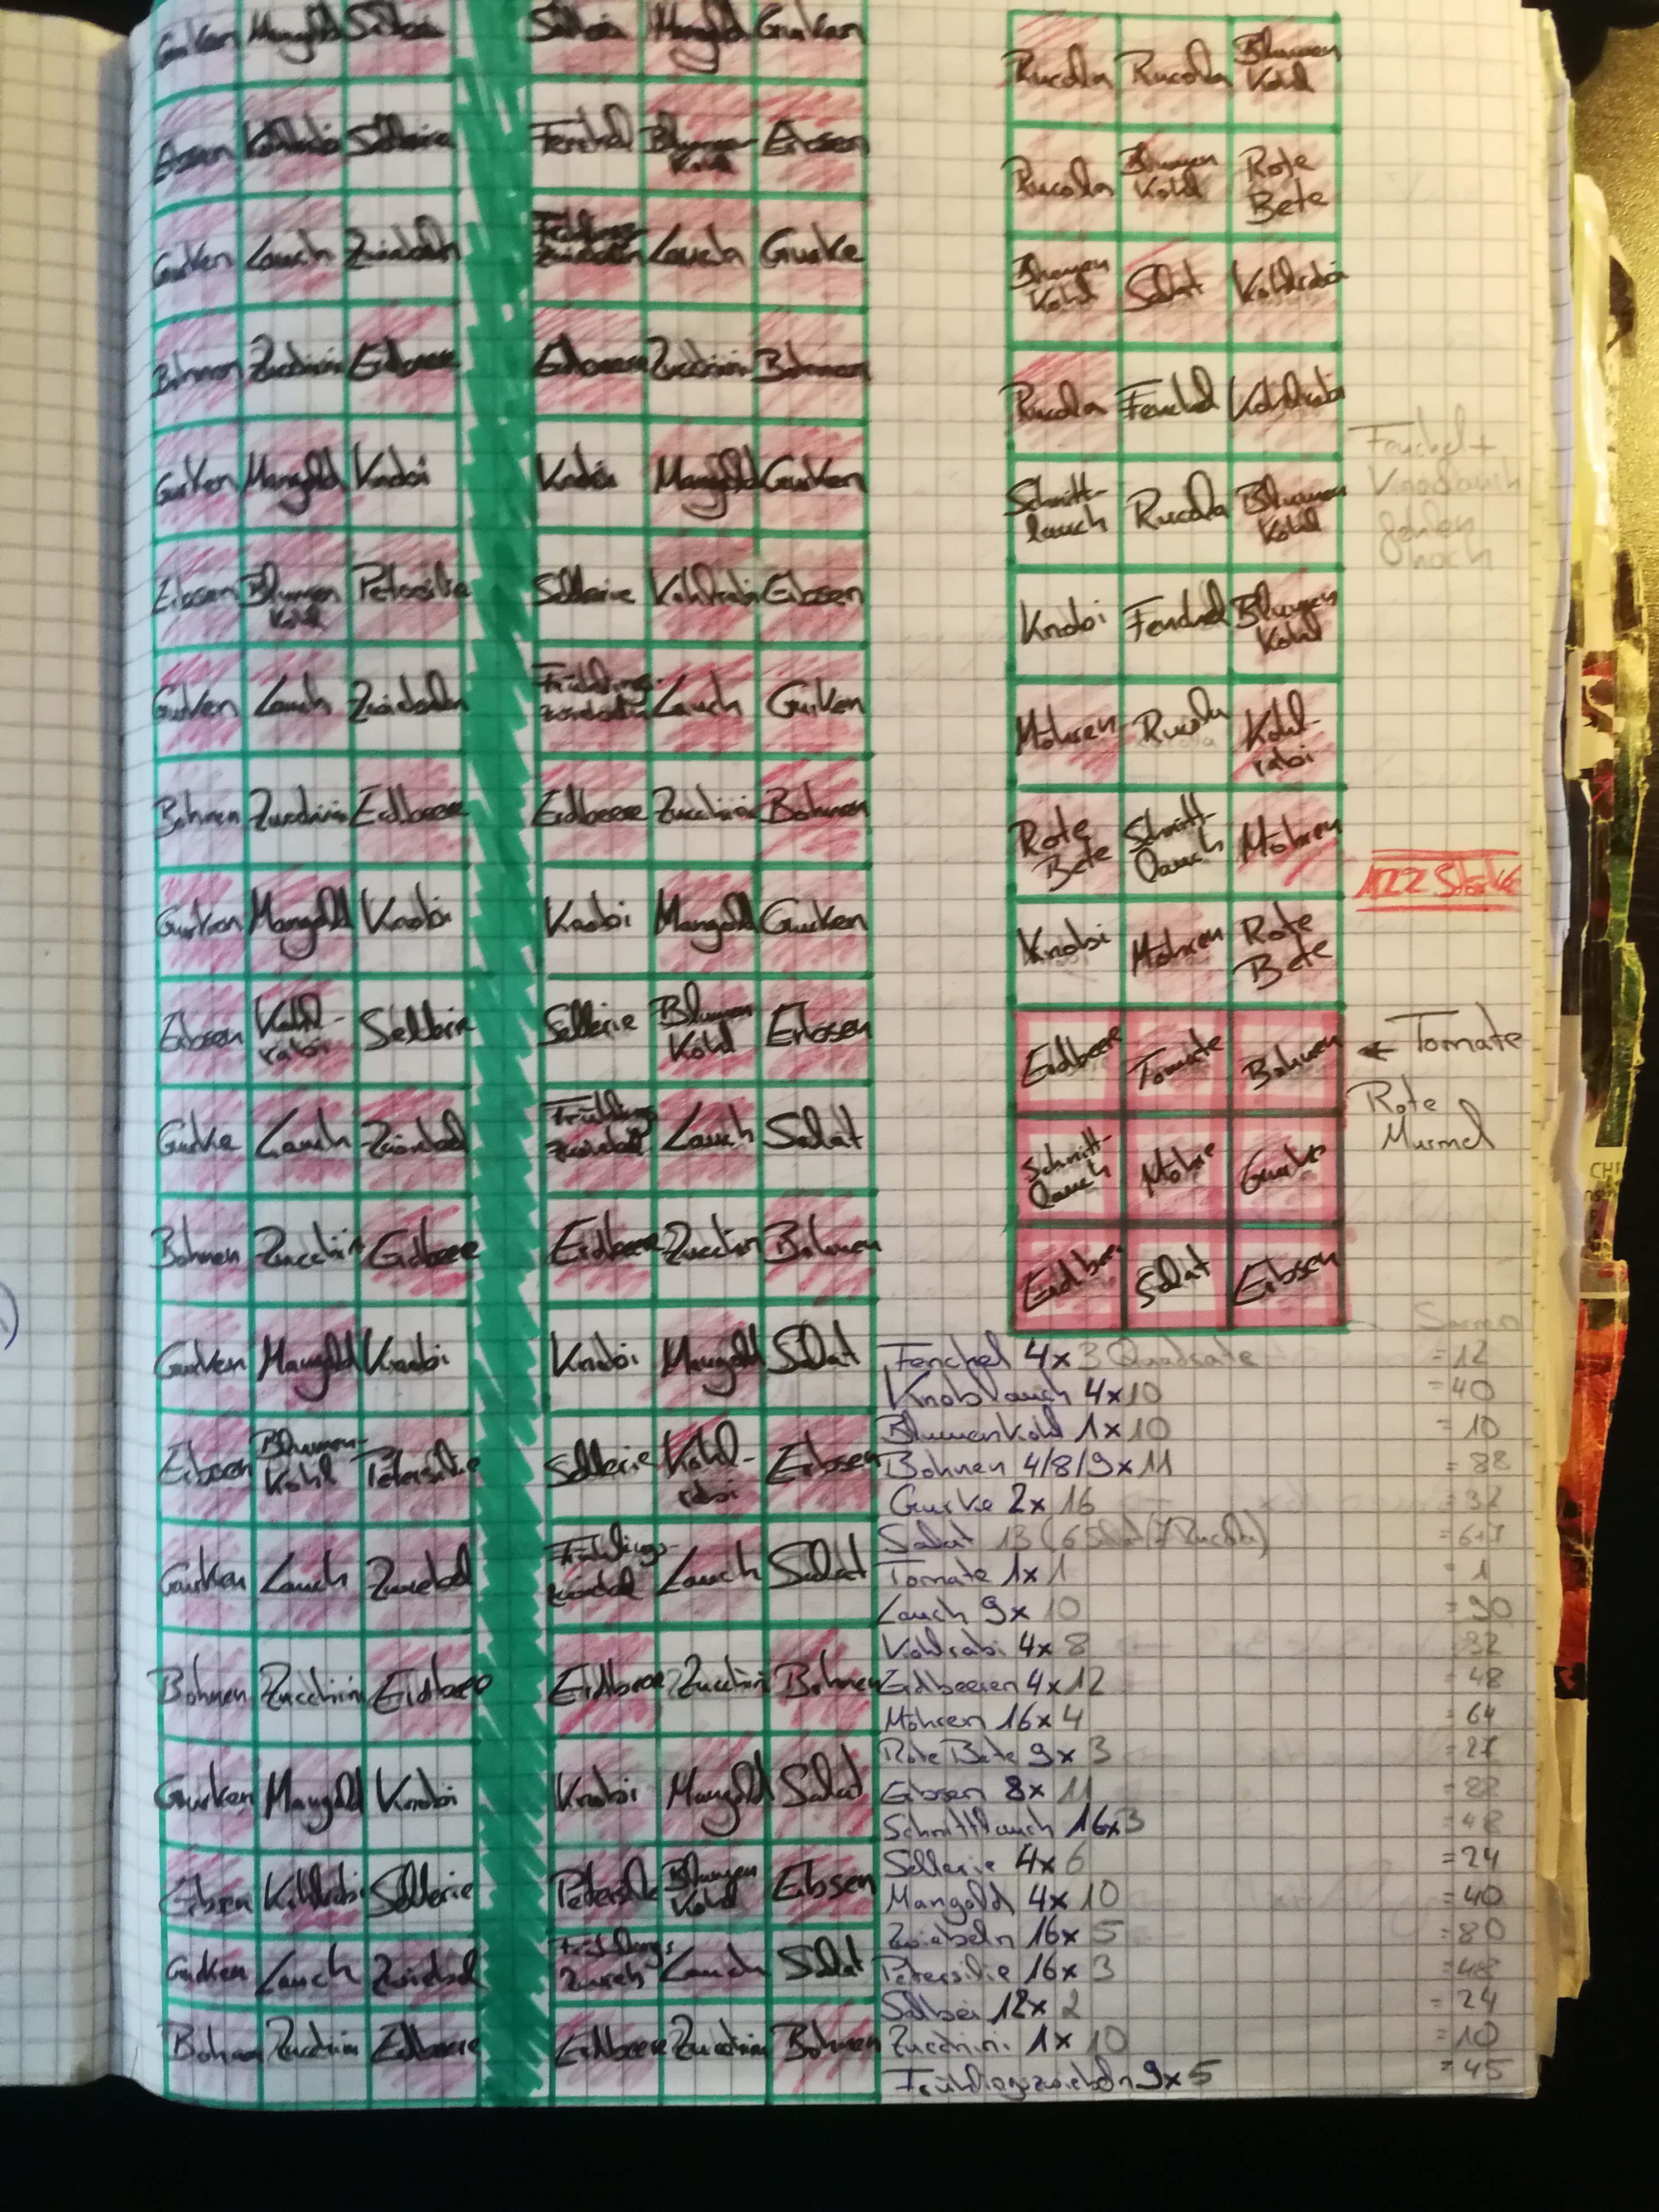 Gurken Mangold Salbei Salbei Mangold Gurken
Erbsen Kohlrabi Sellerie Fenchel Blumen-
Kohl Erbsen
Gurken Lauch Zwiebeln Frühlings-
zwiebeln Lauch Gurke
Bohnen Zucchini Erdbeere Erdbeere Zucchini Bohnen
Gurken Mangold Knobi Knobi Mangold Gurken
Erbsen Blumen
Kohl Petersilie Sellerie Kohlrabi Erbsen
Gurken Lauch Zwiebeln Frühlings-
zwiebeln Lauch Gurken
Bohnen Zucchini Erdbeere Erdbeere Zucchini Bohnen
Gurken Mangold Knobi Knobi Mangold Gurken
Erbsen Kohl-
rabi Sellerie Sellerie Blumen
Kohl Erbsen
Gurke Lauch Zwiebel Frühlings
zwiebel Lauch Salat
Bohnen Zucchini Erdbeere Erdbeere Zucchini Bohnen
Gurken Mangold Knobi Knobi Mangold Salat
Erbsen Blumen-
Kohl Petersilie Sellerie Kohl-
rabi Erbsen
Gurken Lauch Zwiebel Frühlings-
zwiebel Lauch Salat
Bohnen Zucchini Erdbeere Erdbeere Zucchini Bohnen
Gurken Mangold Knobi Knobi Mangold Salat
Erbsen Kohlrabi Sellerie Petersilie Blumen
Kohl Erbsen
Gurken Lauch Zwiebel Frühlings Lauch Salat
Bohnen Zucchini Erdbeere Erdbeere Zucchini Bohnen
Rucola Rucola Blumen
Kohl
Rucola Blumen
Kohl Rote
Bete
Blumen
Kohl Salat Kohlrabi
Rucola Fenchel Kohlrabi
Schnitt-
lauch Rucola Blumen
Kohl
Knobi Fenchel Blumen
Kohl
Möhren Rucola Kohl-
rabi
Rote
Bete Schnitt-
lauch Möhren
Knobi Möhren Rote
Bete
Erdbeere Tomate Bohnen
Schnitt-
lauch Möhre Gurke
Erdbeere Salat Erbsen
Fenchel +
Knoblauch
fehlen
noch
122 Stück
← Tomate
Rote
Murmel
Samen
Fenchel 4x3 Quadrate =12
Knoblauch 4x10 =40
Blumenkohl 1x10 =10
Bohnen 4/8/9x11 =88
Gurke 2x16 =32
Salat 13 (6 Salat/7 Rucola) =6+7
Tomate 1x1 =1
Lauch 9x10 =90
Kohlrabi 4x8 =32
Erdbeeren 4x12 =48
Möhren 16x4 =64
Rote Bete 9x3 =27
Erbsen 8x11 =88
Schnittlauch 16x3 =48
Sellerie 4x6 =24
Mangold 4x10 =40
Zwiebeln 16x5 =80
Petersilie 16x3 =48
Salbei 12x2 =24
Zucchini 1x10 =10
Frühlingszwiebeln 9x5 =45